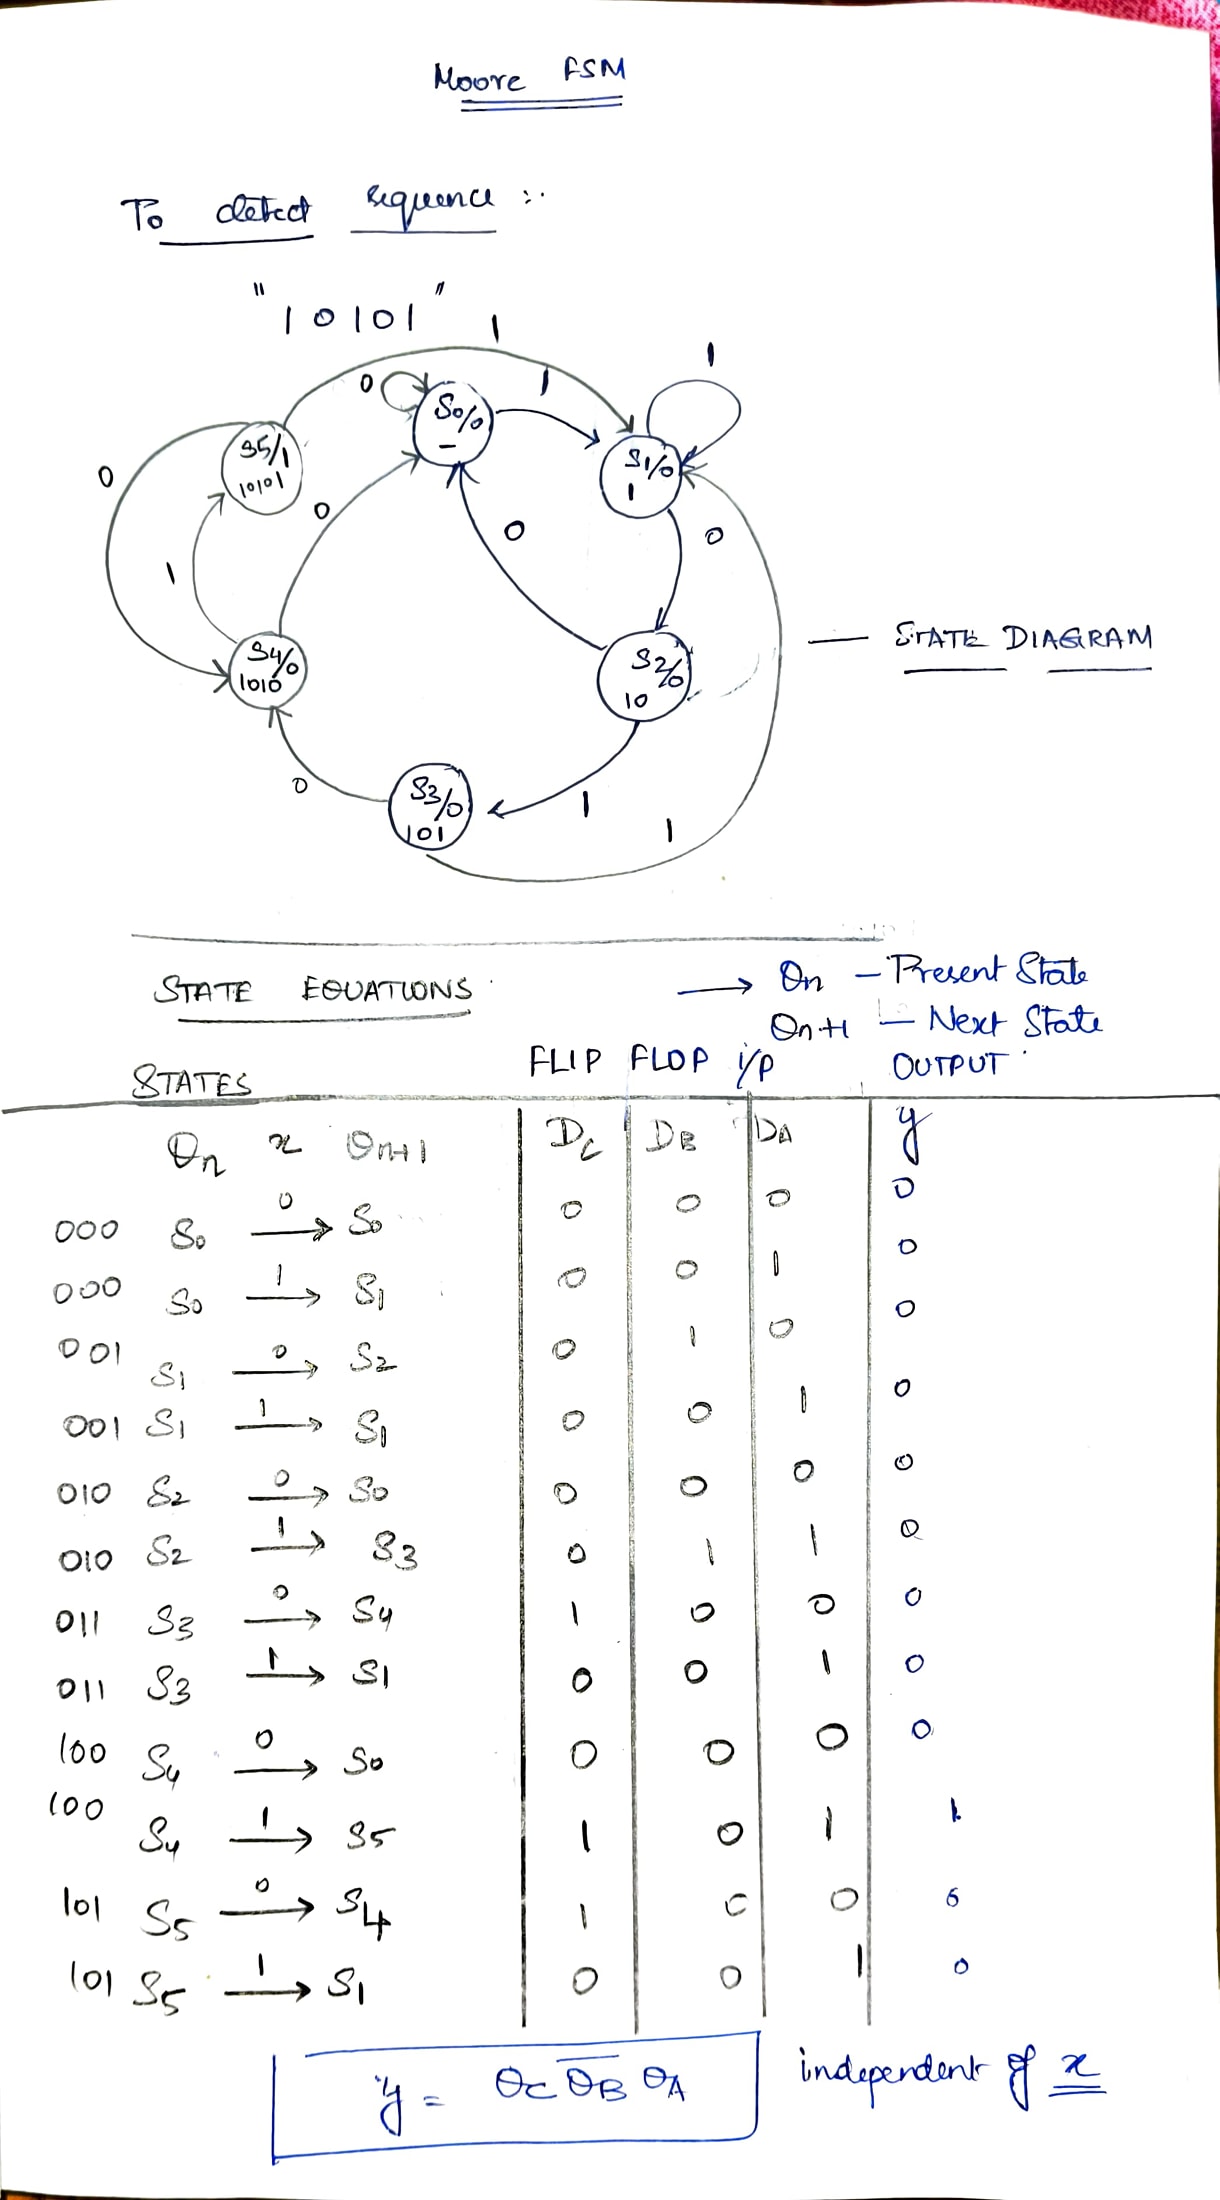 Moore FSM
To detect sequence :.
"10101"
1
0
1
1
S0/0
-
S5/1
10101
S1/0
1
0
0
0
0
1
S4/0
1010
S2/0
10
— STATE DIAGRAM
0
S3/0
101
1
1
STATE EQUATIONS
→ Qn – Present State
Qn+1 – Next State
STATES FLIP FLOP i/P OUTPUT
Qn x Qn+1 DC DB DA y
000 S0 0→ S0 0 0 0 0
000 S0 1→ S1 0 0 1 0
001 S1 0→ S2 0 1 0 0
001 S1 1→ S1 0 0 1 0
010 S2 0→ S0 0 0 0 0
010 S2 1→ S3 0 1 1 0
011 S3 0→ S4 1 0 0 0
011 S3 1→ S1 0 0 1 0
100 S4 0→ S0 0 0 0 0
100 S4 1→ S5 1 0 1 1
101 S5 0→ S4 1 0 0 0
101 S5 1→ S1 0 0 1 0
y = QC Q̅B QA independent of x